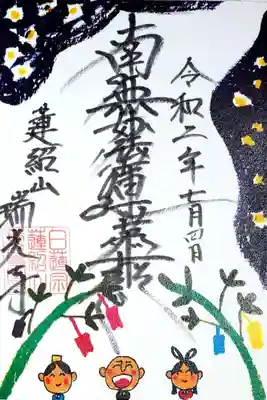 令和二年七月四日
南無妙法蓮華経
蓮紹山
瑞光寺
日蓮宗